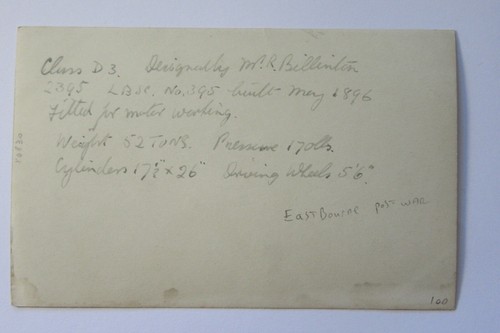 Class D3. Designed by Mr. R. Billinton
2395 LBSC. No. 395 built May 1896
fitted for motor working.
Weight 52 Tons. Pressure 170 lbs.
Cylinders 17½" x 26" Driving Wheels 5'6".
EastBourne post WAR
160